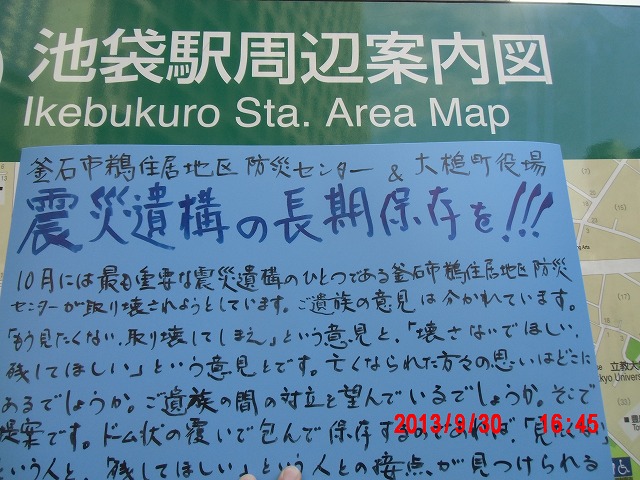 池袋駅周辺案内図
Ikebukuro Sta. Area Map
釜石市鵜住居地区防災センター & 大槌町役場
震災遺構の長期保存を!!!
10月には最も重要な震災遺構のひとつである釜石市鵜住居地区防災
センターが取り壊されようとしています。ご遺族の意見は分かれています。
「もう見たくない、取り壊してしまえ」という意見と、「壊さないでほしい、
残してほしい」という意見とです。亡くなられた方々の思いはどこに
あるでしょうか。ご遺族の間の対立を望んでいるでしょうか。そこで
提案です。ドーム状の覆いで包んで保存するのであれば、「見たくない」
という人と、「残してほしい」という人との接点が見つけられる
2013/9/30 16:45
(17)
(33)
(35)
立教大